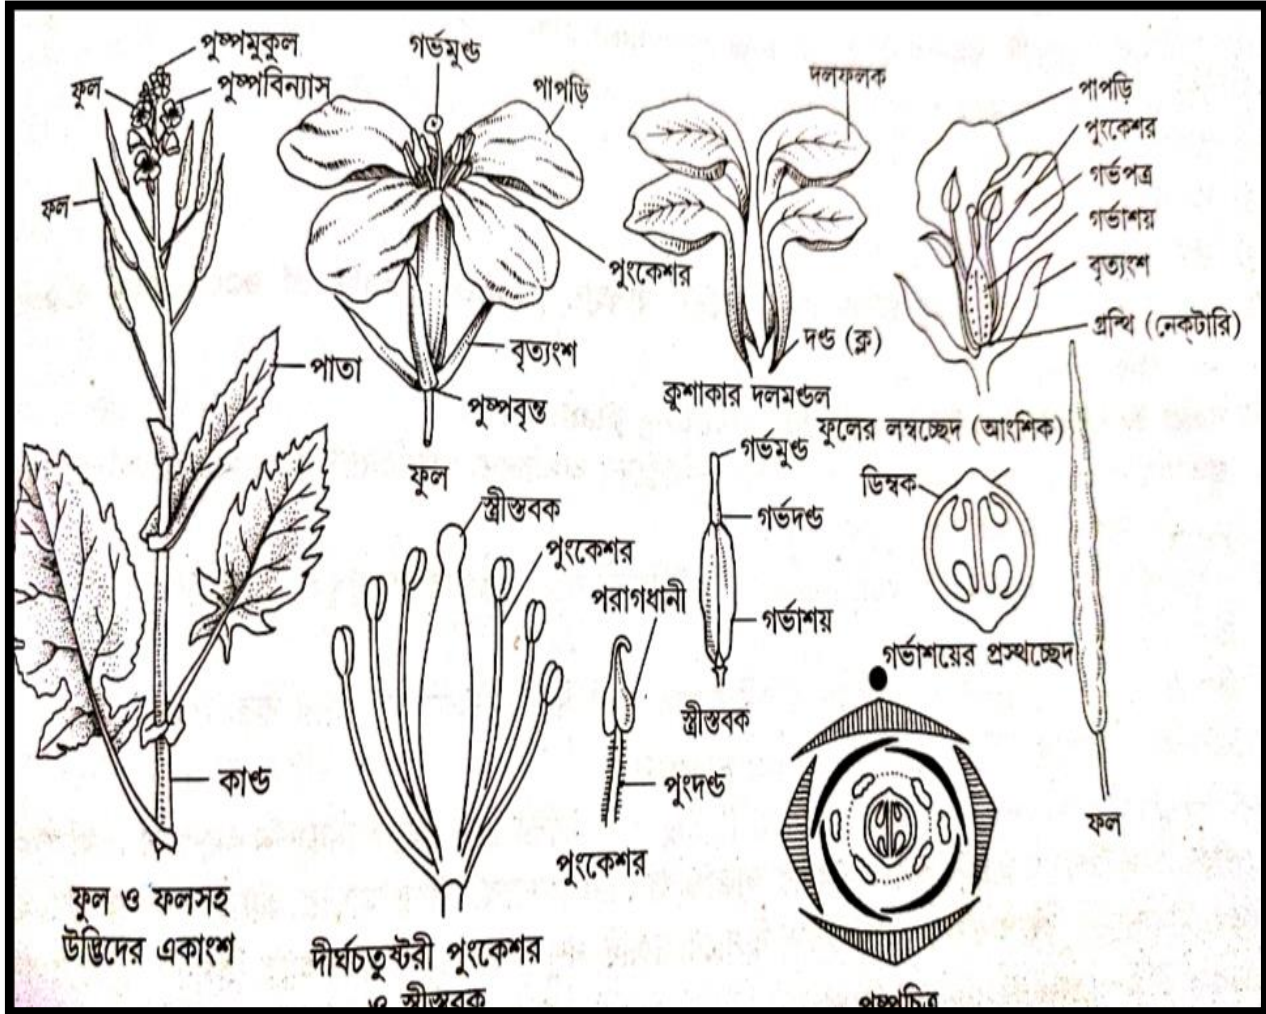 পুষ্পমুকুল
ফুল
পুষ্পবিন্যাস
ফল
পাতা
কাণ্ড
ফুল ও ফলসহ
উদ্ভিদের একাংশ
গর্ভমুণ্ড
পাপড়ি
পুংকেশর
বৃত্যংশ
পুষ্পবৃন্ত
ফুল
দলফলক
দণ্ড (ক্ল)
ক্রুশাকার দলমণ্ডল
পাপড়ি
পুংকেশর
গর্ভপত্র
গর্ভাশয়
বৃত্যংশ
গ্রন্থি (নেক্‌টারি)
ফুলের লম্বচ্ছেদ (আংশিক)
স্ত্রীস্তবক
পুংকেশর
দীর্ঘচতুষ্টরী পুংকেশর
ও স্ত্রীস্তবক
পরাগধানী
পুংদণ্ড
পুংকেশর
গর্ভমুণ্ড
গর্ভদণ্ড
গর্ভাশয়
স্ত্রীস্তবক
ডিম্বক
গর্ভাশয়ের প্রস্থচ্ছেদ
পুষ্পচিত্র
ফল